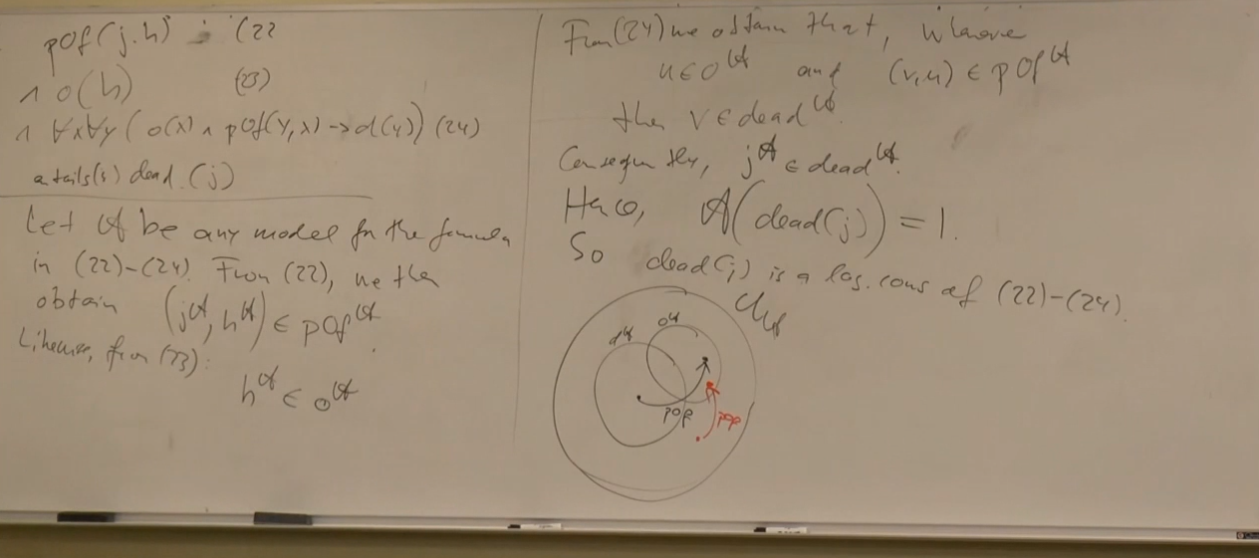 pOf(j,h) : (22
∧ o(h) (23)
∧ ∀x∀y (o(x) ∧ pOf(y,x) -> d(y)) (24)
entails(s) dead (j)
Let 𝔄 be any model for the formula
in (22)-(24). From (22), we then
obtain (j^𝔄, h^𝔄) ∈ pOf^𝔄.
Likewise, from (23):
h^𝔄 ∈ o^𝔄
From (24) we obtain that, whenever
u ∈ o^𝔄 and (v,u) ∈ pOf^𝔄
then v ∈ dead^𝔄.
Consequently, j^𝔄 ∈ dead^𝔄.
Hence, 𝔄(dead(j)) = 1.
So dead(j) is a log. cons of (22)-(24).
d^𝔄
o^𝔄
pOf
pOf